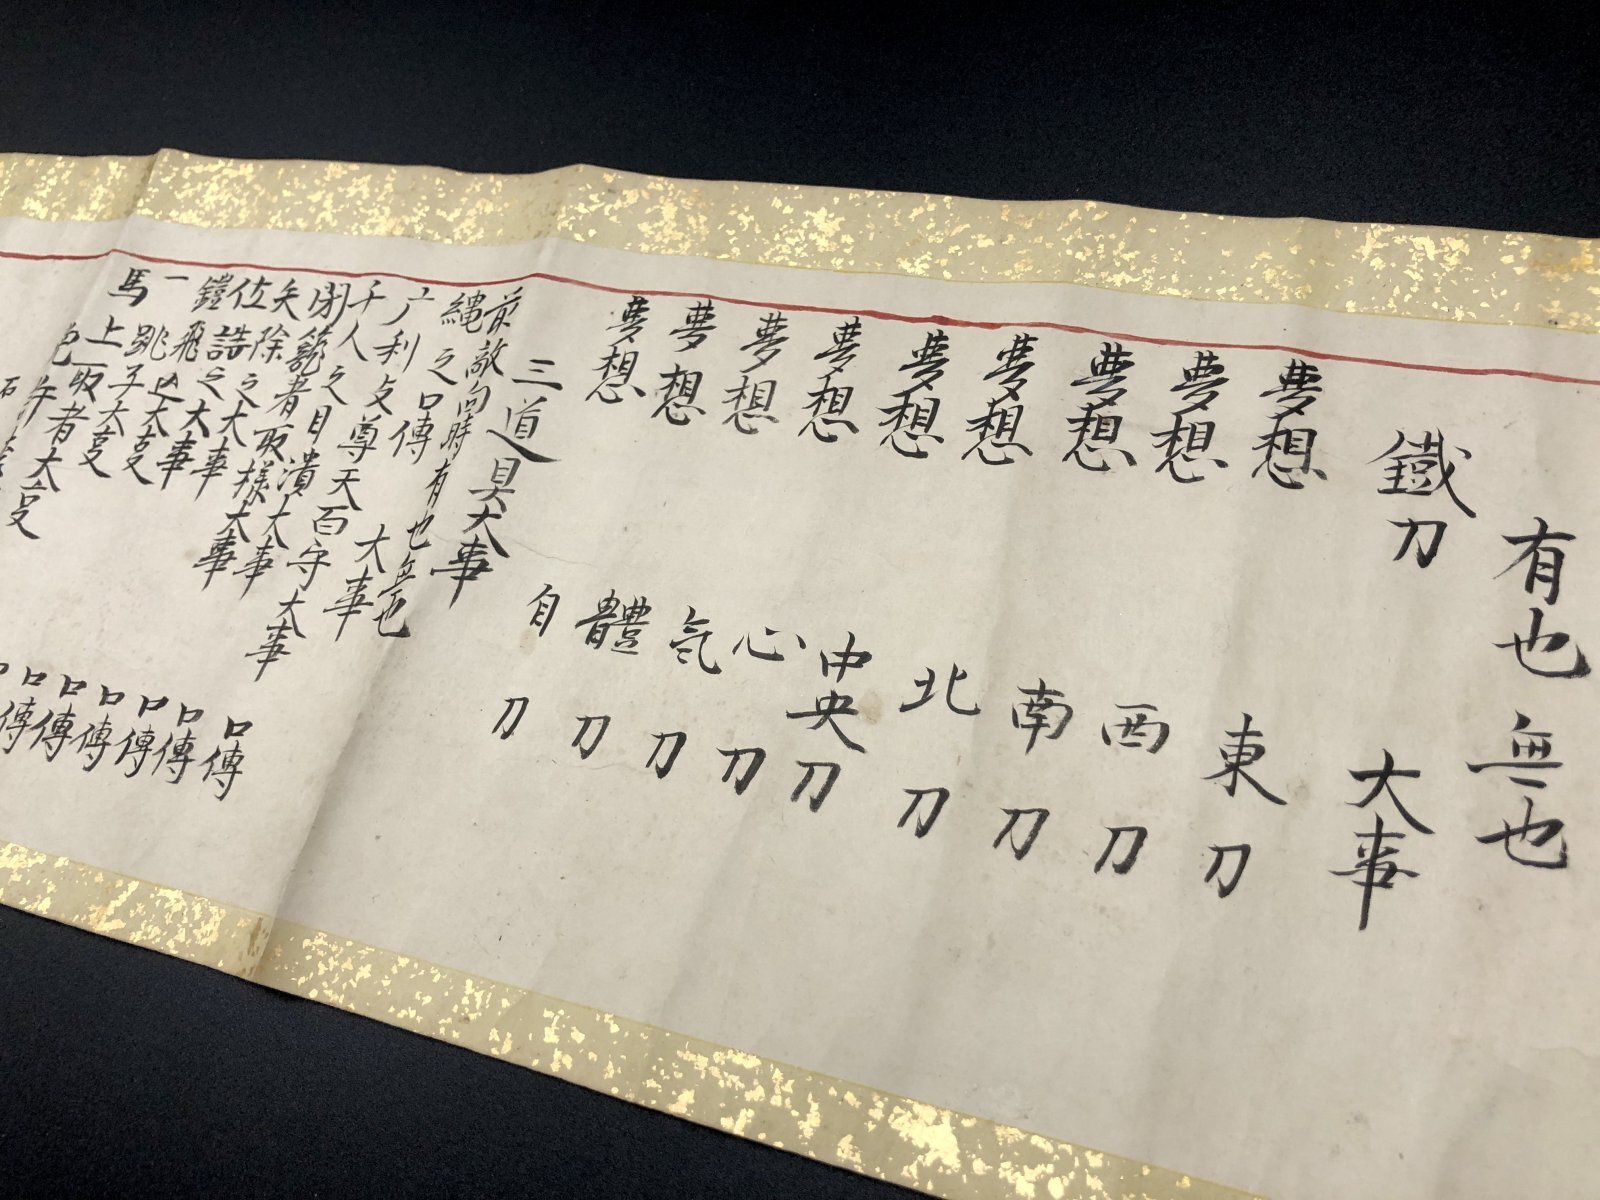 有也 無也
鐵刀 大事
夢想 東刀
夢想 西刀
夢想 南刀
夢想 北刀
夢想 中央刀
夢想 心刀
夢想 氣刀
夢想 體刀
夢想 自刀
三道具大事
敵向時有也無也
縄之口傳
广利支尊天 大事
千人之目潰大事
閉籠者取様大事 口傳
矢除之大事 口傳
位詰之大事 口傳
鎧飛込大事 口傳
一跳子大事 口傳
馬上取者大事 口傳